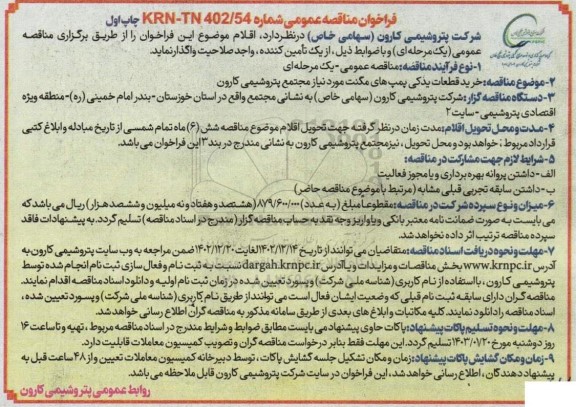 فراخوان مناقصه عمومی شماره KRN-TN 402/54 چاپ اول
شرکت پتروشیمی کارون (سهامی خاص) درنظردارد، اقلام موضوع این فراخوان را از طریق برگزاری مناقصه
عمومی (یک مرحله ای) و با ضوابط ذیل، از یک تأمین کننده، واجد صلاحیت واگذار نماید.
۱-نوع فرآیند مناقصه: مناقصه عمومی - یک مرحله ای
۲-موضوع مناقصه: خرید قطعات یدکی پمپ های مگنت مورد نیاز مجتمع پتروشیمی کارون
۳-دستگاه مناقصه گزار: شرکت پتروشیمی کارون (سهامی خاص) به نشانی مجتمع واقع در استان خوزستان -بندر امام خمینی (ره)- منطقه ویژه
اقتصادی پتروشیمی - سایت ۲
۴-مدت و محل تحویل اقلام: مدت زمان در نظر گرفته جهت تحویل اقلام موضوع مناقصه شش (۶) ماه تمام شمسی از تاریخ مبادله و ابلاغ کتبی
قرارداد مربوط؛ خواهد بود و محل تحویل، نیز مجتمع پتروشیمی کارون به نشانی مندرج در بند ۳ این فراخوان می باشد.
۵-شرایط لازم جهت مشارکت در مناقصه:
الف- داشتن پروانه بهره برداری و یا مجوز فعالیت
ب- داشتن سابقه تجربی قبلی مشابه (مرتبط با موضوع مناقصه حاضر)
۶-میزان و نوع سپرده شرکت در مناقصه: مقطوعا مبلغ (به عدد) ۸۷۹/۶۰۰/۰۰۰ (هشتصد و هفتاد و نه میلیون و ششصد هزار) ریال می باشد که
می بایست به صورت ضمانت نامه معتبر بانکی و یا واریز وجه نقد به حساب مناقصه گزار (مندرج در اسناد مناقصه) تسلیم گردد. به پیشنهادات فاقد
سپرده مناقصه ترتیب اثر داده نخواهد شد.
۷-مهلت و نحوه دریافت اسناد مناقصه: متقاضیان می توانند از تاریخ ۱۴۰۲/۱۲/۱۴ لغایت ۱۴۰۲/۱۲/۲۰ ضمن مراجعه به وب سایت پتروشیمی کارون به
آدرس www.krnpc.ir بخش مناقصات و مزایدات و یا آدرس dargah.krnpc.ir نسبت به ثبت نام و فعال سازی ثبت نام انجام شده توسط
پتروشیمی کارون، با استفاده از نام کاربری (شناسه ملی شرکت) و پسورد تعیین شده در زمان ثبت نام اولیه و دانلود اسناد مناقصه اقدام نمایند.
مناقصه گران دارای سابقه ثبت نام قبلی که وضعیت ایشان فعال است می توانند از طریق نام کاربری (شناسه ملی شرکت) و پسورد تعیین شده،
اسناد مناقصه را دانلود نمایند. کلیه مکاتبات و ابلاغ های بعدی از طریق سامانه مذکور به مناقصه گران اطلاع رسانی خواهد شد.
۸-مهلت و نحوه تسلیم پاکات پیشنهاد: پاکات حاوی پیشنهاد می بایست مطابق ضوابط و شرایط مندرج در اسناد مناقصه مربوط، تهیه و تا ساعت ۱۶
روز دوشنبه مورخ ۱۴۰۳/۰۱/۲۰ تسلیم گردد. این مهلت فقط بنابر درخواست مناقصه گران و تصویب کمیسیون معاملات قابلیت دارد.
۹-زمان و مکان گشایش پاکات پیشنهاد: زمان و مکان تشکیل جلسه گشایش پاکات، توسط دبیرخانه کمیسیون معاملات تعیین و از ۴۸ ساعت قبل به
پیشنهاد دهندگان، اطلاع رسانی خواهد شد، این فراخوان در سایت شرکت پتروشیمی کارون قابل ملاحظه می باشد.
روابط عمومی پتروشیمی کارون